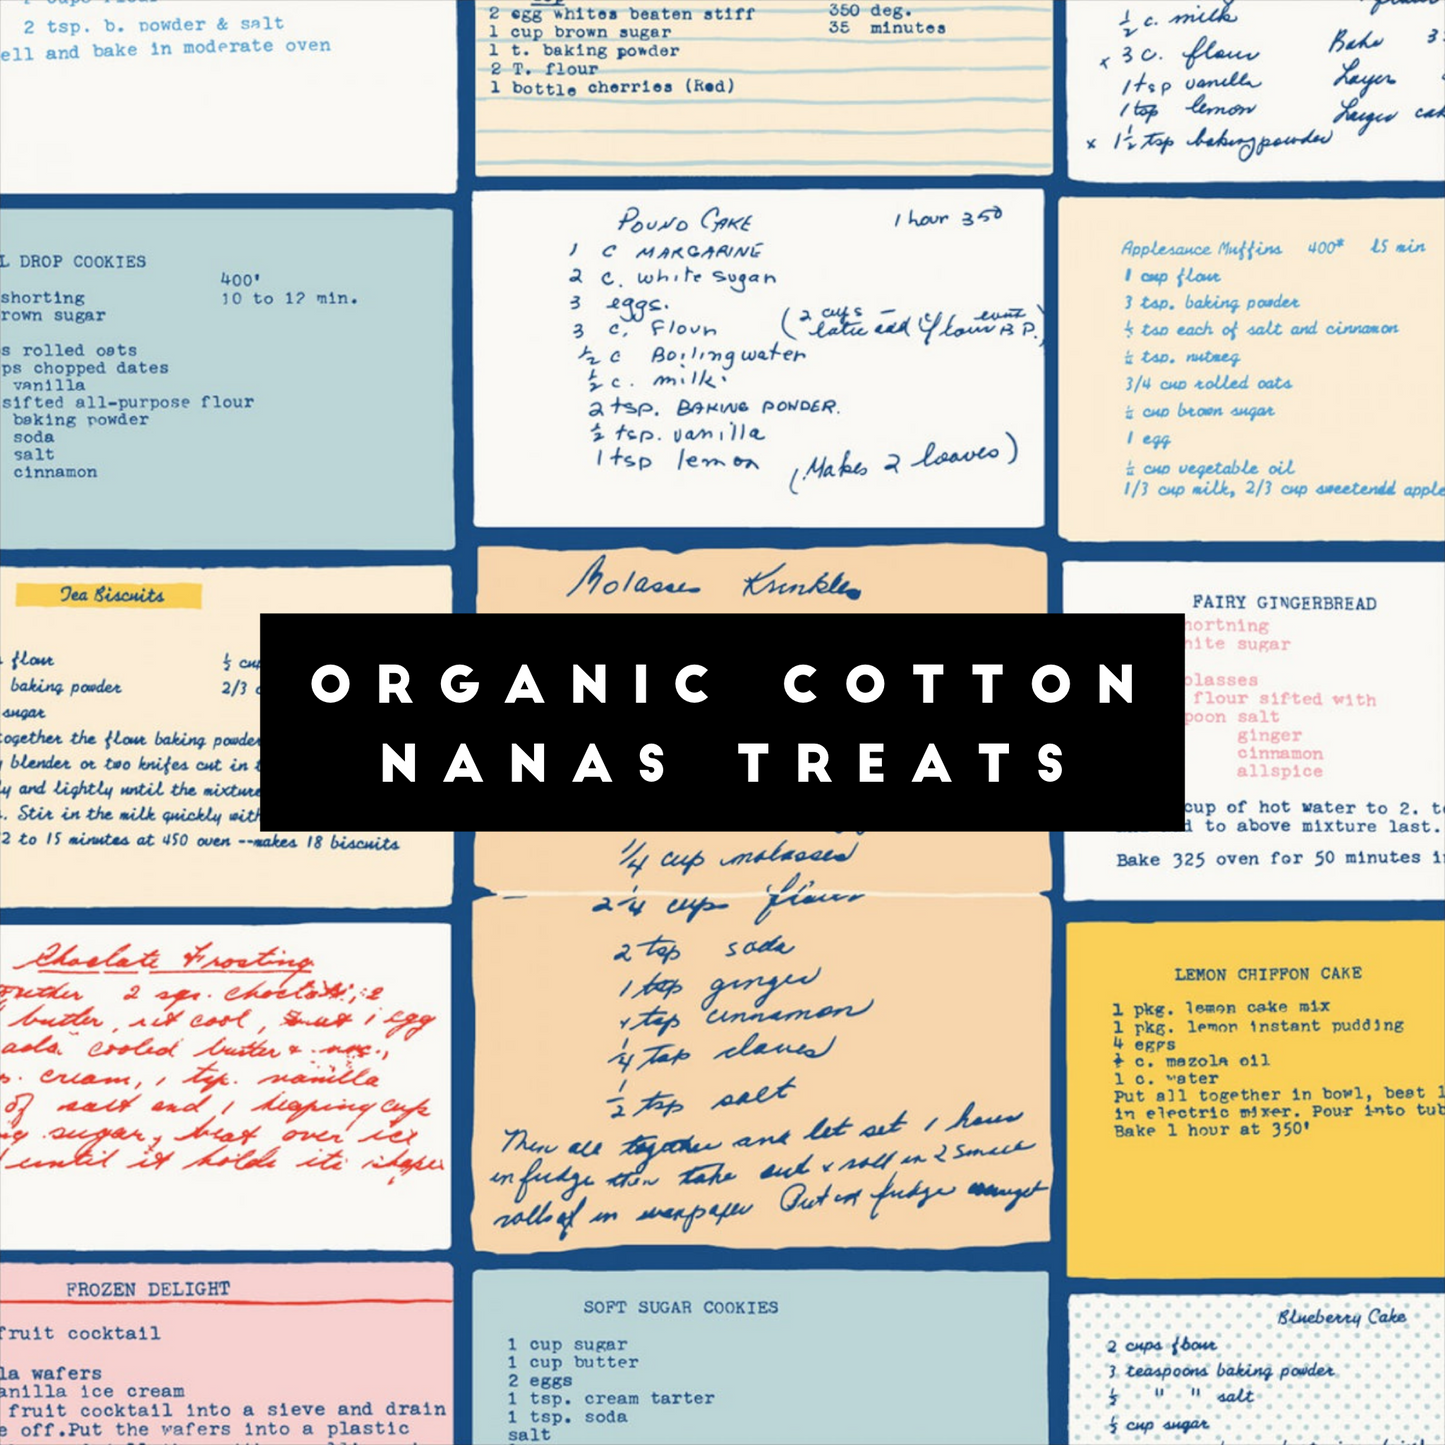 2 tsp. b. powder & salt
ell and bake in moderate oven
2 egg whites beaten stiff
1 cup brown sugar
1 t. baking powder
2 T. flour
1 bottle cherries (Red)
350 deg.
35 minutes
½ c. milk
x 3 c. flour
1 tsp vanilla
1 tsp lemon
x 1½ tsp baking powder
Bake 3
Layer
Larger cak
L DROP COOKIES
400'
10 to 12 min.
shorting
rown sugar
s rolled oats
ps chopped dates
vanilla
sifted all-purpose flour
baking powder
soda
salt
cinnamon
POUND CAKE 1 hour 350
1 C MARGARINE
2 c. white sugar
3 eggs.
3 c. Flour (2 cups
½ c Boiling water
½ c. milk.
2 tsp. BAKING POWDER.
½ tsp. vanilla
1 tsp lemon (Makes 2 loaves)
Applesauce Muffins 400° 15 min
1 cup flour
3 tsp. baking powder
½ tsp each of salt and cinnamon
tsp. nutmeg
3/4 cup rolled oats
cup brown sugar
1 egg
cup vegetable oil
1/3 cup milk, 2/3 cup sweetendd apple
Tea Biscuits
flour
baking powder
sugar
½ cu
2/3 c
together the flour baking powde
blender or two knifes cut in t
y and lightly until the mixture
. Stir in the milk quickly with
2 to 15 minutes at 450 oven --makes 18 biscuits
Molasses Krinkles
ORGANIC COTTON
NANAS TREATS
¼ cup molasses
2¼ cups flour
2 tsp soda
1 tsp ginger
1 tsp cinnamon
¼ tsp cloves
½ tsp salt
Then all together and let set 1 hour
in fridge then take out & roll in 2 small
rolls of in waxpaper Put in fridge
FAIRY GINGERBREAD
hortning
hite sugar
olasses
flour sifted with
poon salt
ginger
cinnamon
allspice
cup of hot water to 2. t
d to above mixture last.
Bake 325 oven for 50 minutes i
Choclate Frosting
2 sqs. choclate, 2
butter, let cool, 1 egg
add cooled butter &
cream, 1 tsp. vanilla
of salt and 1 heaping cup
sugar, beat over ice
until it holds its shape
LEMON CHIFFON CAKE
1 pkg. lemon cake mix
1 pkg. lemon instant pudding
4 eggs
c. mazola oil
1 c. water
Put all together in bowl, beat 1
in electric mixer. Pour into tub
Bake 1 hour at 350'
FROZEN DELIGHT
fruit cocktail
la wafers
anilla ice cream
fruit cocktail into a sieve and drain
e off.Put the wafers into a plastic
SOFT SUGAR COOKIES
1 cup sugar
1 cup butter
2 eggs
1 tsp. cream tarter
1 tsp. soda
salt
Blueberry Cake
2 cups flour
3 teaspoons baking powder
½ " " salt
½ cup sugar